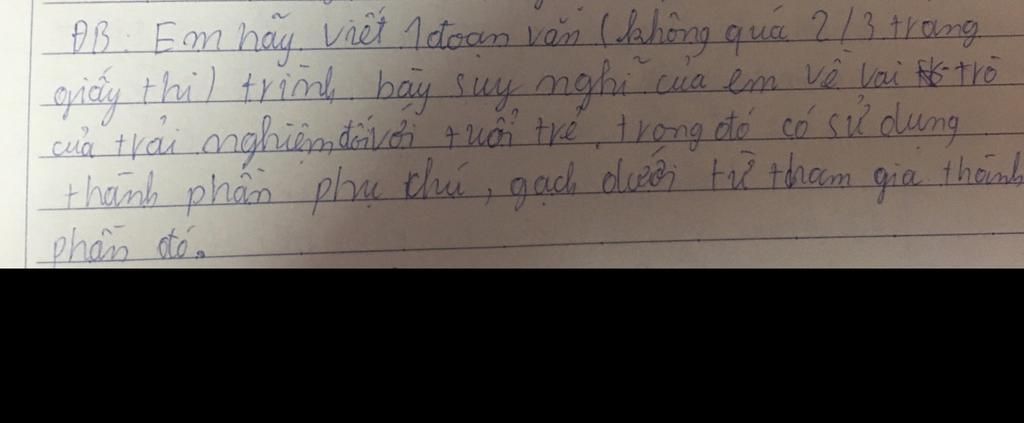 ĐB: Em hãy viết 1 đoạn văn (không quá 2/3 trang
giấy thi) trình bày suy nghĩ của em về vai trò
của trải nghiệm đối với tuổi trẻ, trong đó có sử dụng
thành phần phụ chú, gạch dưới từ tham gia thành
phần đó.